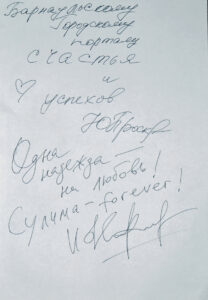 Барнаульскому
Городскому
порталу
счастья
и
успехов
Одна
надежда —
на любовь!
Сулима - forever!